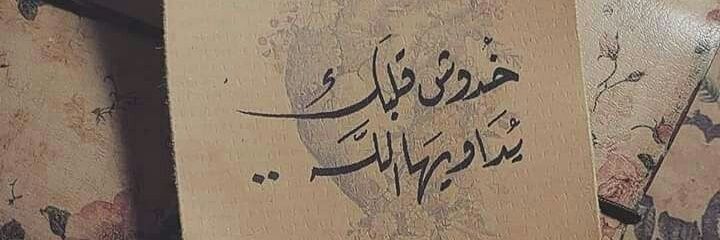 خُدوش قلبَك
يُدَاويهَا اللَّه ..